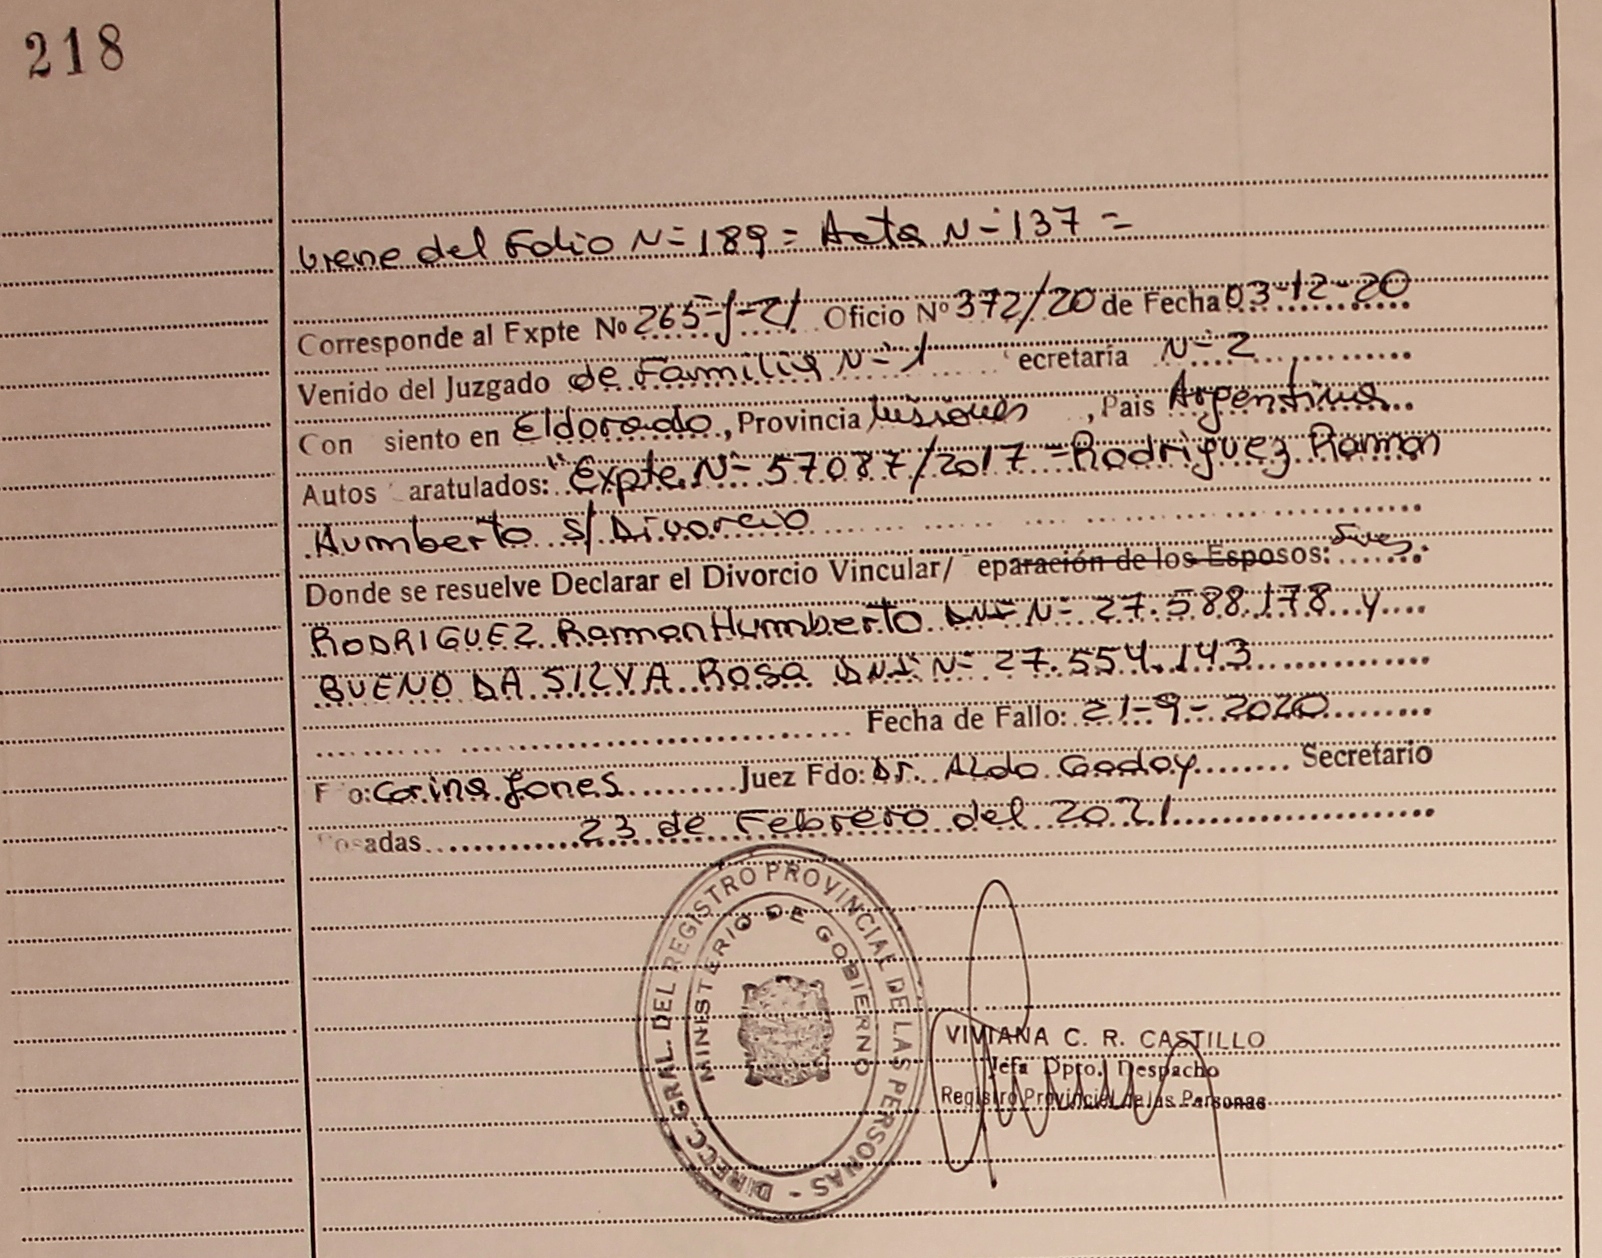 218
viene del Folio N= 189 = Acta N= 137 =
Corresponde al Expte No 265-J-21 Oficio Nº 372/20 de Fecha 03-12-20
Venido del Juzgado de Familia N= 1 ecretaria N= 2
Con siento en Eldorado, Provincia Misiones, Pais Argentina
Autos aratulados: "Expte. N= 57087/2017 = Rodriguez Ramon
Humberto s/ Divorcio
Donde se resuelve Declarar el Divorcio Vincular/ eparación de los Esposos:
RODRIGUEZ Ramon Humberto DNI N= 27.588.178 y
BUENO DA SILVA Rosa DNI N= 27.554.143
Fecha de Fallo: 21-9-2020
F o: Corina Jones Juez Fdo: Dr. Aldo Godoy Secretario
Posadas 23 de Febrero del 2021
DIRECC. GRAL. DEL REGISTRO PROVINCIAL DE LAS PERSONAS -
MINISTERIO DE GOBIERNO
VIVIANA C. R. CASTILLO
Jefa Dpto. Despacho
Registro Provincial de las Personas